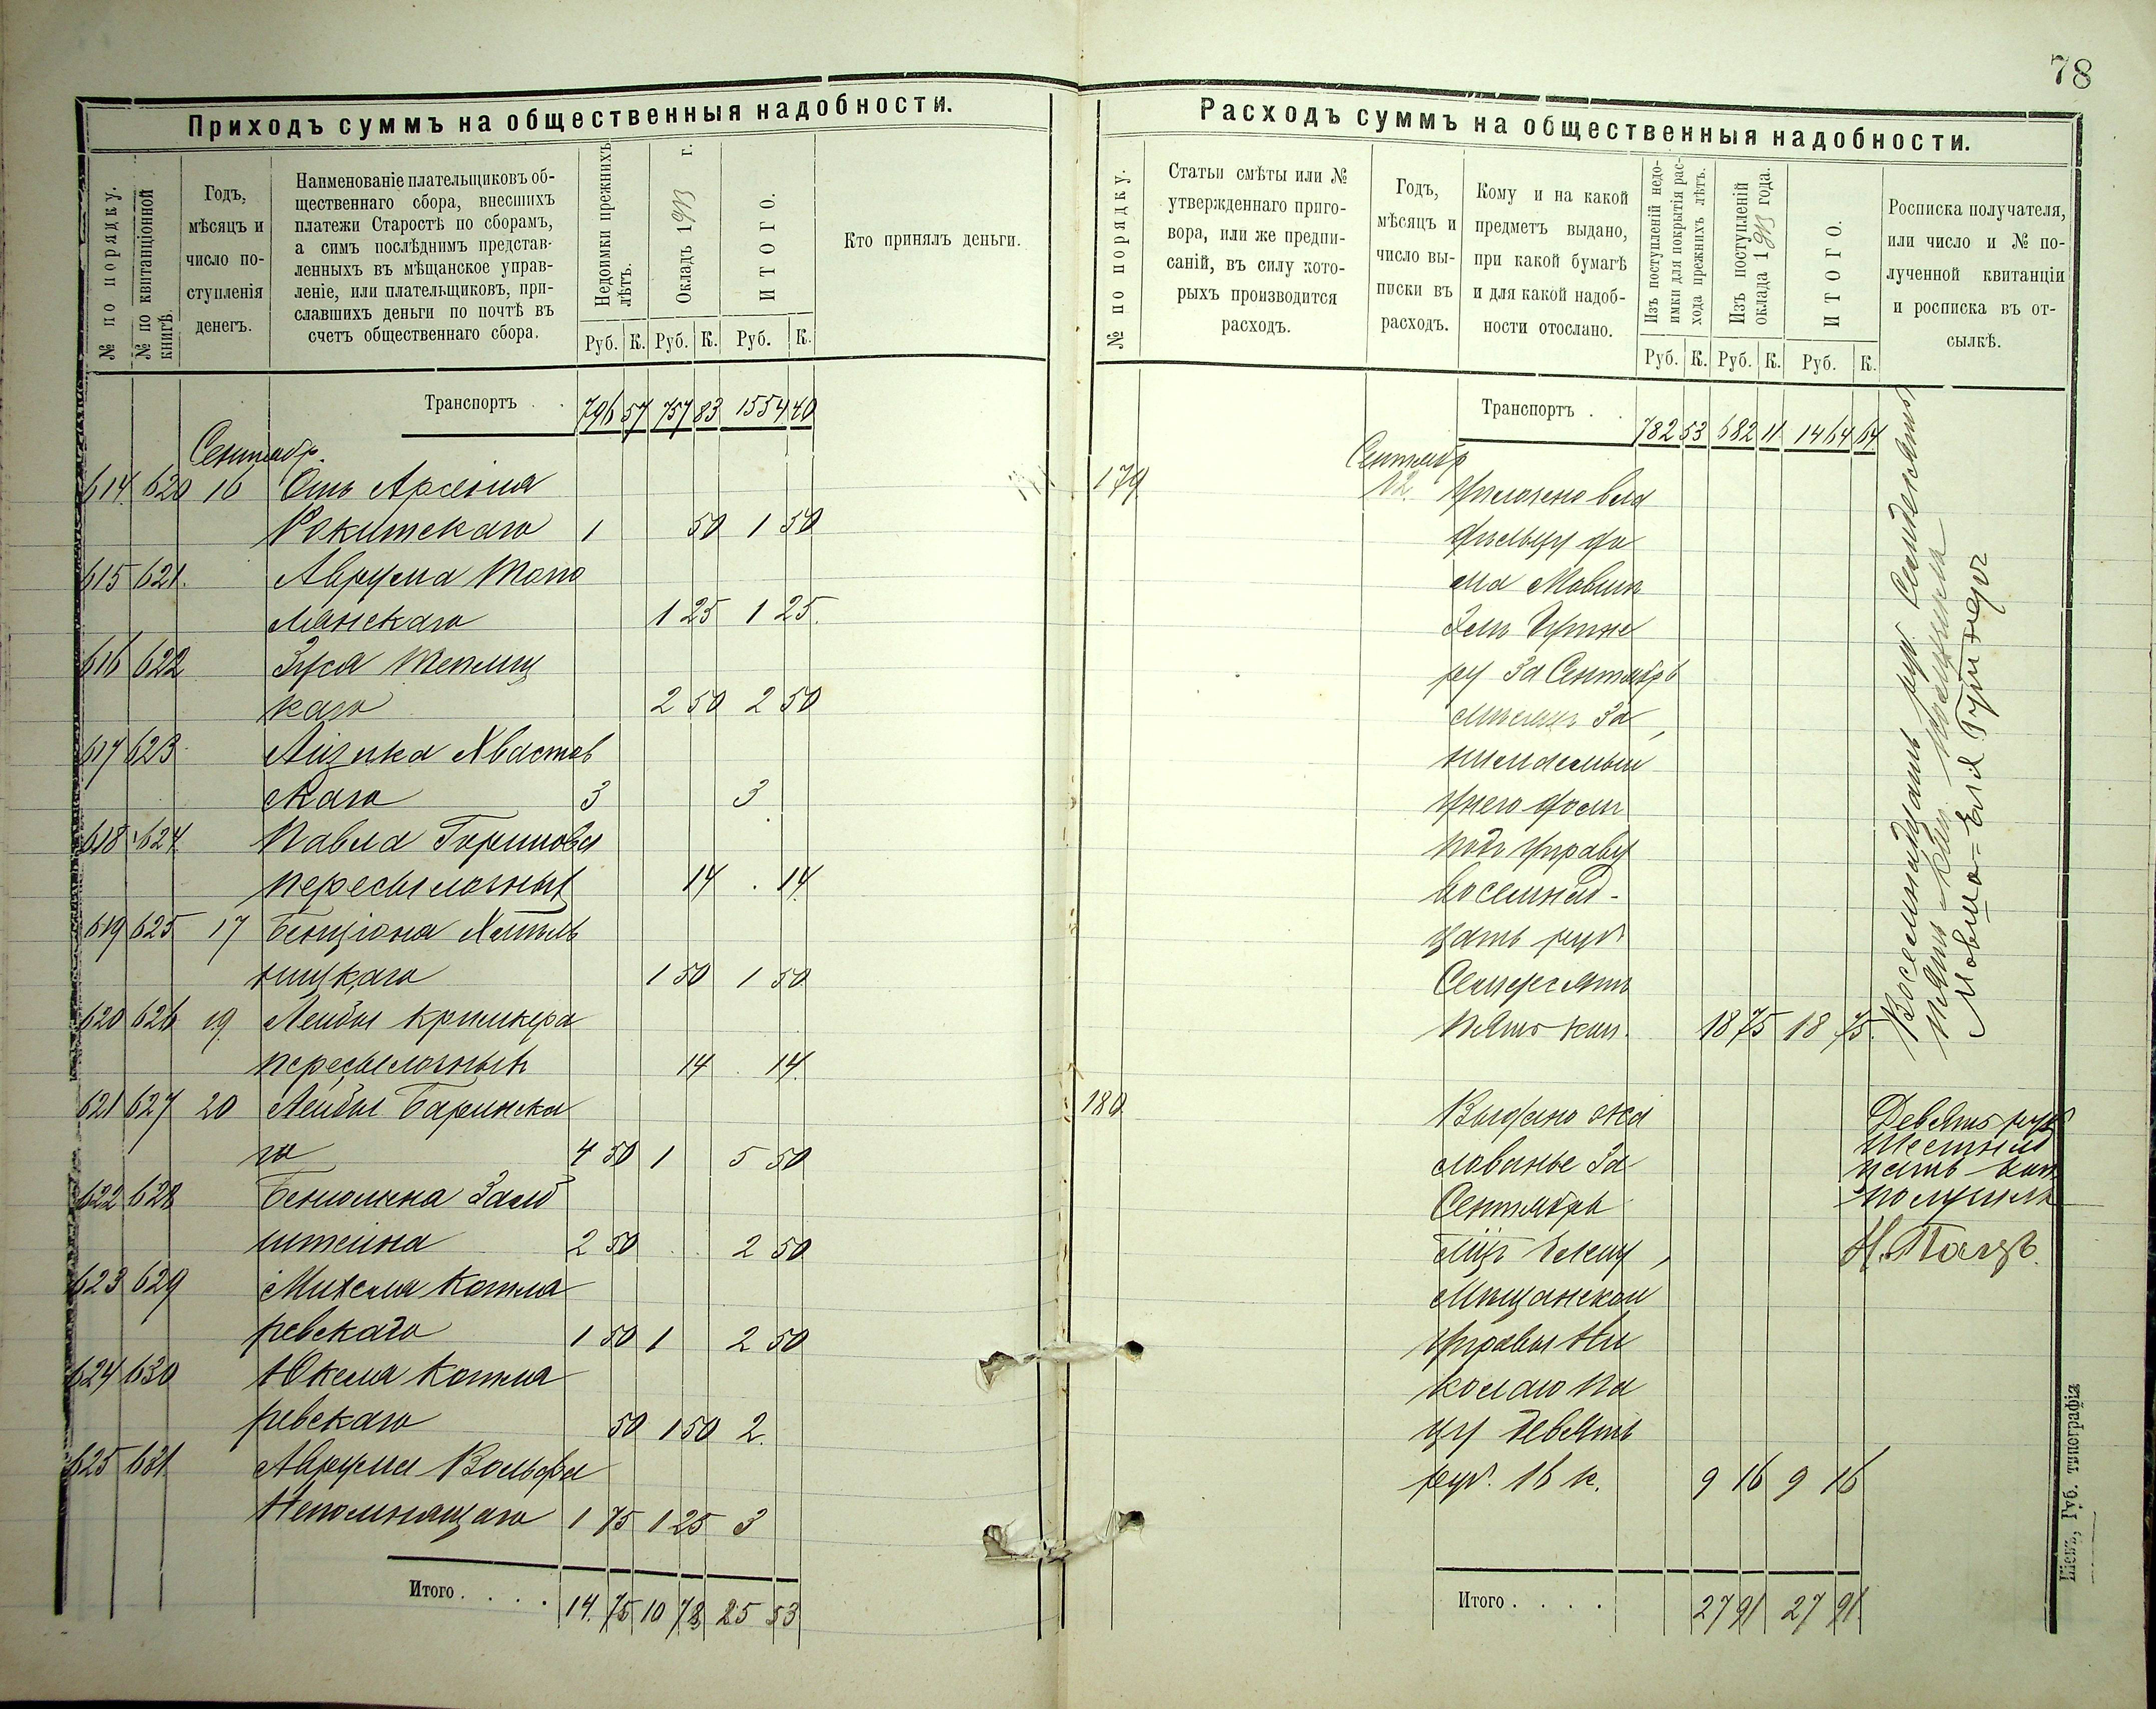 78
Приходъ суммъ на общественныя надобности.
№ по порядку.
№ по квитанціонной книгѣ.
Годъ,
мѣсяцъ и
число по-
ступленія
денегъ.
Наименованіе плательщиковъ об-
щественнаго сбора, внесшихъ
платежи Старостѣ по сборамъ,
а симъ послѣднимъ представ-
ленныхъ въ мѣщанское управ-
леніе, или плательщиковъ, при-
славшихъ деньги по почтѣ въ
счетъ общественнаго сбора.
Недоимки прежнихъ лѣтъ.
Окладъ 1913 г.
ИТОГО.
Руб. К. Руб. К. Руб. К.
Кто принялъ деньги.
Транспортъ . . 796 57 757 83 1554 40
Сентябр.
614 620 16 Отъ Арсенія
Рокитскаго 1 50 1 50
615 621. Аврума Топо
лянскаго 1 25 1 25.
616 622 Зуся Теплиц
каго 2 50 2 50
617 623 Айзика Хвастов
скаго 3 3
618 624 Павла
пересылочныхъ 14 . 14.
619 625 17 Бенціона Хмѣль
ницкаго 1 50 1 50
620 626 19 Лейбы Кримкера
пересылочныхъ 14 . 14.
621 627 20 Лейбы Баринска
го 4 50 1 5 50
622 628 Беньомина Зальб
штейна 2 50 2 50
623 629 Михеля Котля
ревскаго 1 50 1 2 50
624 630 Юкеля Котля
ревскаго 50 1 50 2.
625 631 Аврума Вольфа
Непомнящаго 1 75 1 25 3
Итого . . . . 14. 75 10 78 25 53
Расходъ суммъ на общественныя надобности.
№ по порядку.
Статьи смѣты или №
утвержденнаго приго-
вора, или же предпи-
саній, въ силу кото-
рыхъ производится
расходъ.
Годъ,
мѣсяцъ и
число вы-
писки въ
расходъ.
Кому и на какой
предметъ выдано,
при какой бумагѣ
и для какой надоб-
ности отослано.
Изъ поступленій недо-
имки для покрытія рас-
хода прежнихъ лѣтъ.
Изъ поступленій
оклада 1913 года.
ИТОГО.
Руб. К. Руб. К. Руб. К.
Росписка получателя,
или число и № по-
лученной квитанціи
и росписка въ от-
сылкѣ.
Транспортъ . . 782 53 682 11 1464 64
Сентябр
179 12. Уплочено вла
дѣльцу до
ма Мовши
Зель Гутне
ру за Сентябрь
мѣсяцъ за
нимаемый
у него домъ
подъ Управу
восемнад-
цать руб
Семьдесятъ
пять коп. 18 75 18 75.
Восемнадцать руб Семьдесятъ
пять коп получилъ
Мовша-Гутнеръ
180 Выдано жа
лованье за
Сентябрь
мцъ
Мѣщанской
Управы Ни
колаю Па
цу девять
руб. 16 к. 9 16 9 16
Девять руб
шестнад
цать коп
получилъ
Н. Пацъ.
Итого . . . . 27 91 27 91.
Кіевъ, Губ. типографія